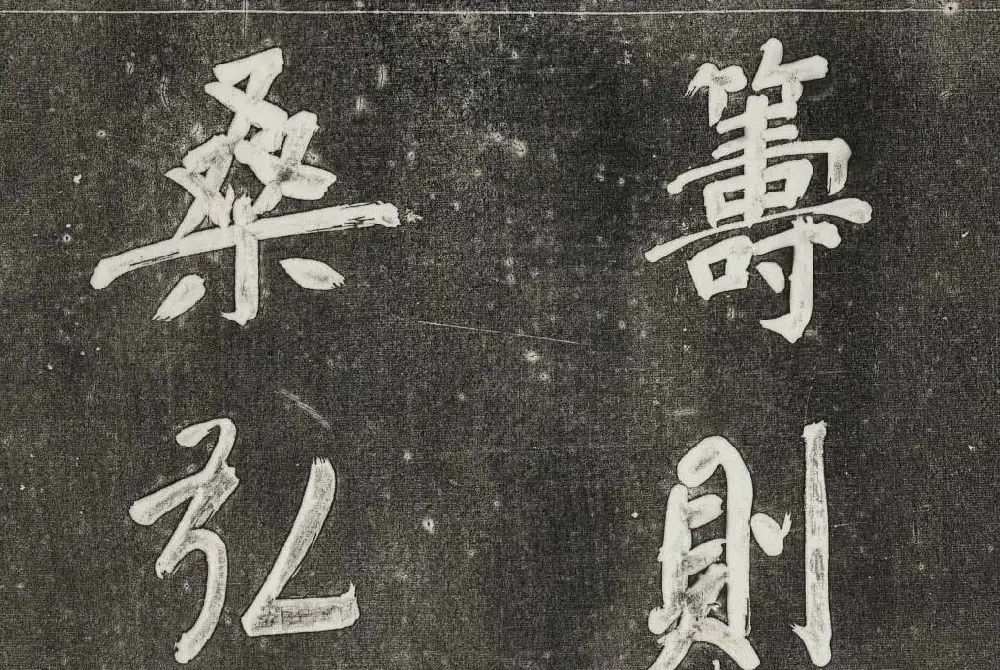 籌則
桑弘